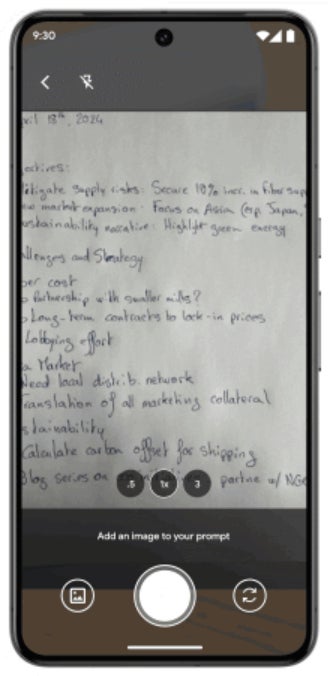 9:30
ril 18th, 2024
ectives:
itigate supply risks: Secure 10% incr. in fiber sup
ew market expansion: Focus on Asia (esp. Japan,
ustainability narrative: Highlight green energy
llenges and Strategy
per cost
Partnership with smaller mills?
Long-term contracts to lock-in prices
Lobbying effort
a Market
Need local distrib. network
Translation of all marketing collateral
stainability
Calculate carbon offset for shipping
Blog series on partne w/
.5 1x 3
Add an image to your prompt